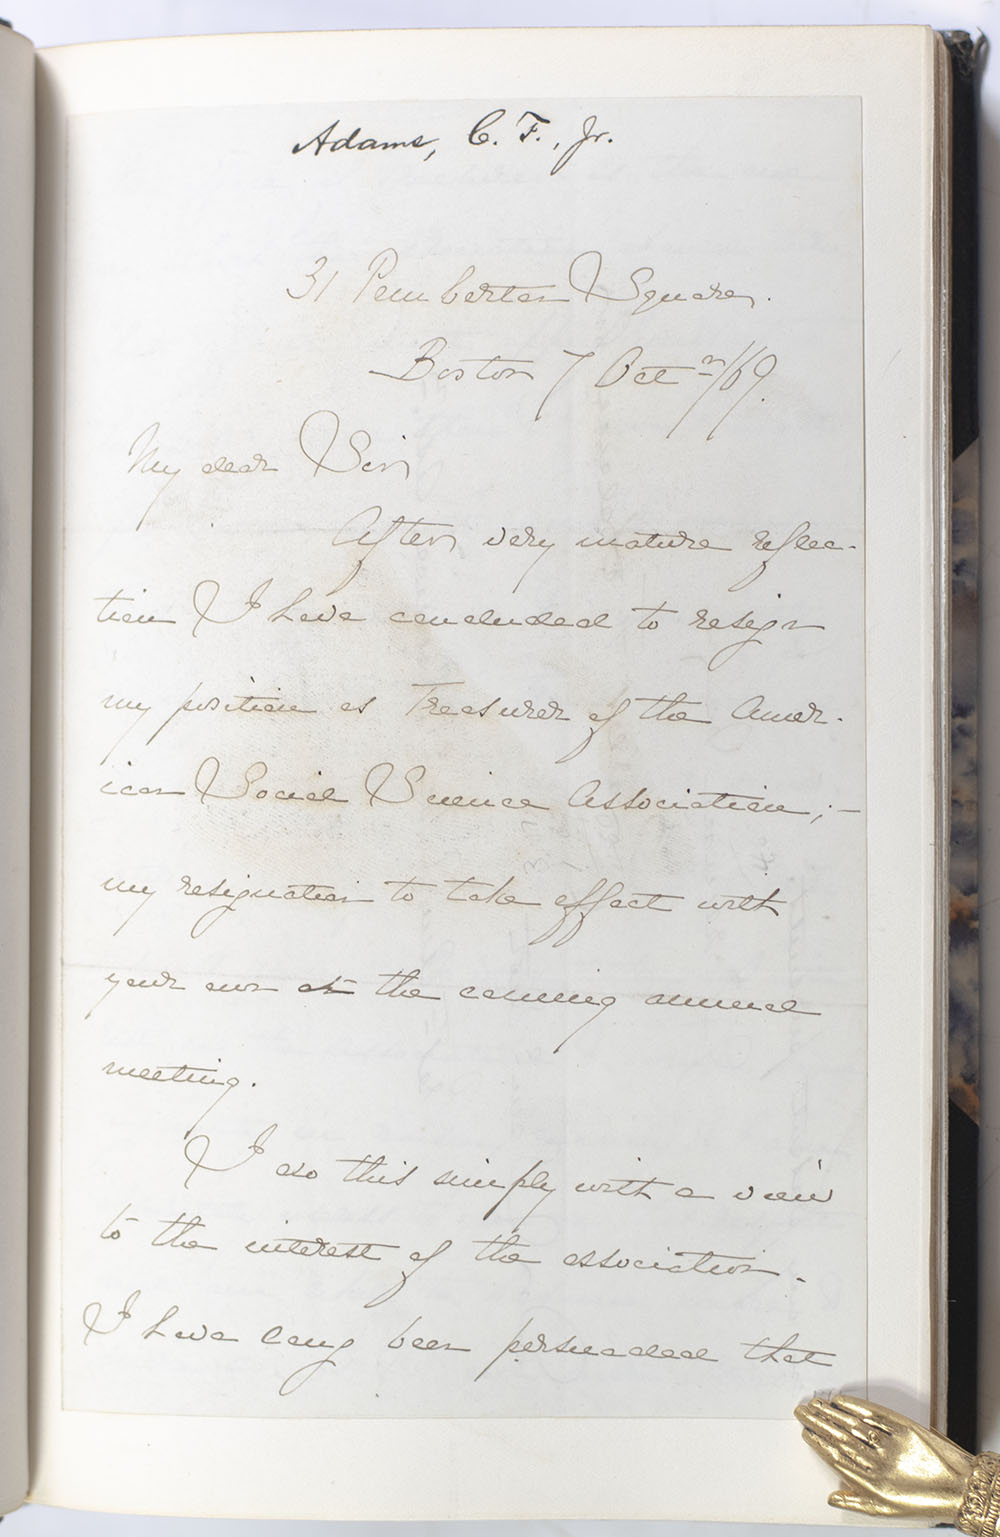 Adams, C. F., Jr.
31 Pemberton Square.
Boston 7 Octr/69.
My dear Sir,
After very mature reflec-
tion I have concluded to resign
my position as Treasurer of the Amer-
ican Social Science Association; –
my resignation to take effect with
your own at the coming annual
meeting.
I do this simply with a view
to the interest of the association.
I have long been persuaded that